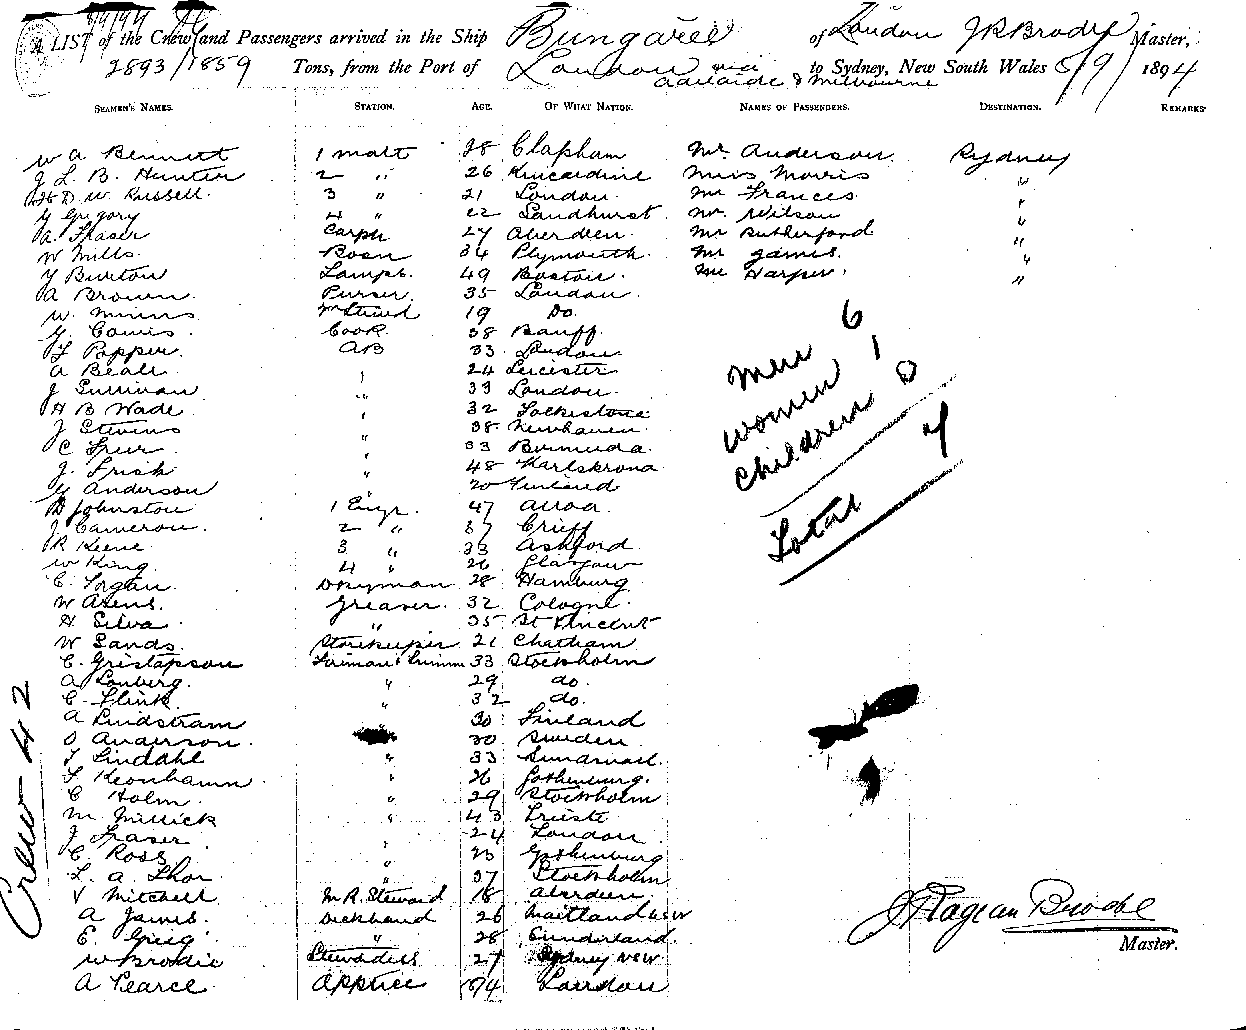 A LIST of the Crew and Passengers arrived in the Ship Bungaree of London J R Brodie Master,
2893/1859 Tons, from the Port of London via Adelaide & Melbourne to Sydney, New South Wales 8/9/1894
SEAMEN'S NAMES. STATION. AGE. OF WHAT NATION. NAMES OF PASSENGERS. DESTINATION. REMARKS
W A Bennett 1 mate 28 Clapham Mr. Anderson Sydney
J L. B. Hunter 2 " 26 Kincardine Miss Morris "
D. W. Russell. 3 " 21 London. Mr Frances "
G Gregory 4 " 22 Sandhurst. Mr. Wilson "
A. Fraser Carptr 27 Aberdeen. Mr Rutherford "
W Mills. Bosn 34 Plymouth. Mr James. "
Y Burton Lamps. 49 Boston. Mr Harper. "
A Brown. Purser. 35 London.
W. Minns 19 Do.
G. Cowis Cook. 38 Banff.
Popper. AB 33 London.
A Beale " 24 Leicester
J Sullivan " 39 London.
H B Wade. " 32 Folkestone
J Stevens " 38 Newhaven.
C Speur " 33 Bermuda.
J. Frisk " 48 Karlskrona
G Anderson " 20 Finland
B Johnston 1 Engr. 47 Arroa.
J Cameron. 2 " 37 Crieff
R Keene. 3 " 33 Ashford
W King. 4 " 26 Glasgow
C. Logan. Dkyman 28 Hamburg
W Arens. Greaser. 32 Cologne.
H Silva. " 35 St Vincent
W Sands. Storekeeper 21 Chatham
C. Gristapson Fireman & Trimm 33 Stockholm
A Lonberg. " 29 do.
C. Flink. " 32 do.
A Lindstram " 30 Finland
O Anderson. " 30 Sweden
T Lindahl " 33 Sundsvall.
Keonhamn " 26 Gothenburg.
C Holm. " 29 Stockholm
M Millick " 43 Trieste
J Fraser. " 24 London
C. Ross " 23 Gothenburg
L. A. Thor. " 37 Stockholm
V Mitchell M. R. Steward 18 Aberdeen
A James. Deckhand 26 Maitland NSW
E. Greig " 28 Sunderland.
W Brodie Stewardess 27 Sydney NSW
A Pearce Apptice London
Men 6
Women 1
Children 0
Total 7
Crew 42
Brodie
Master.